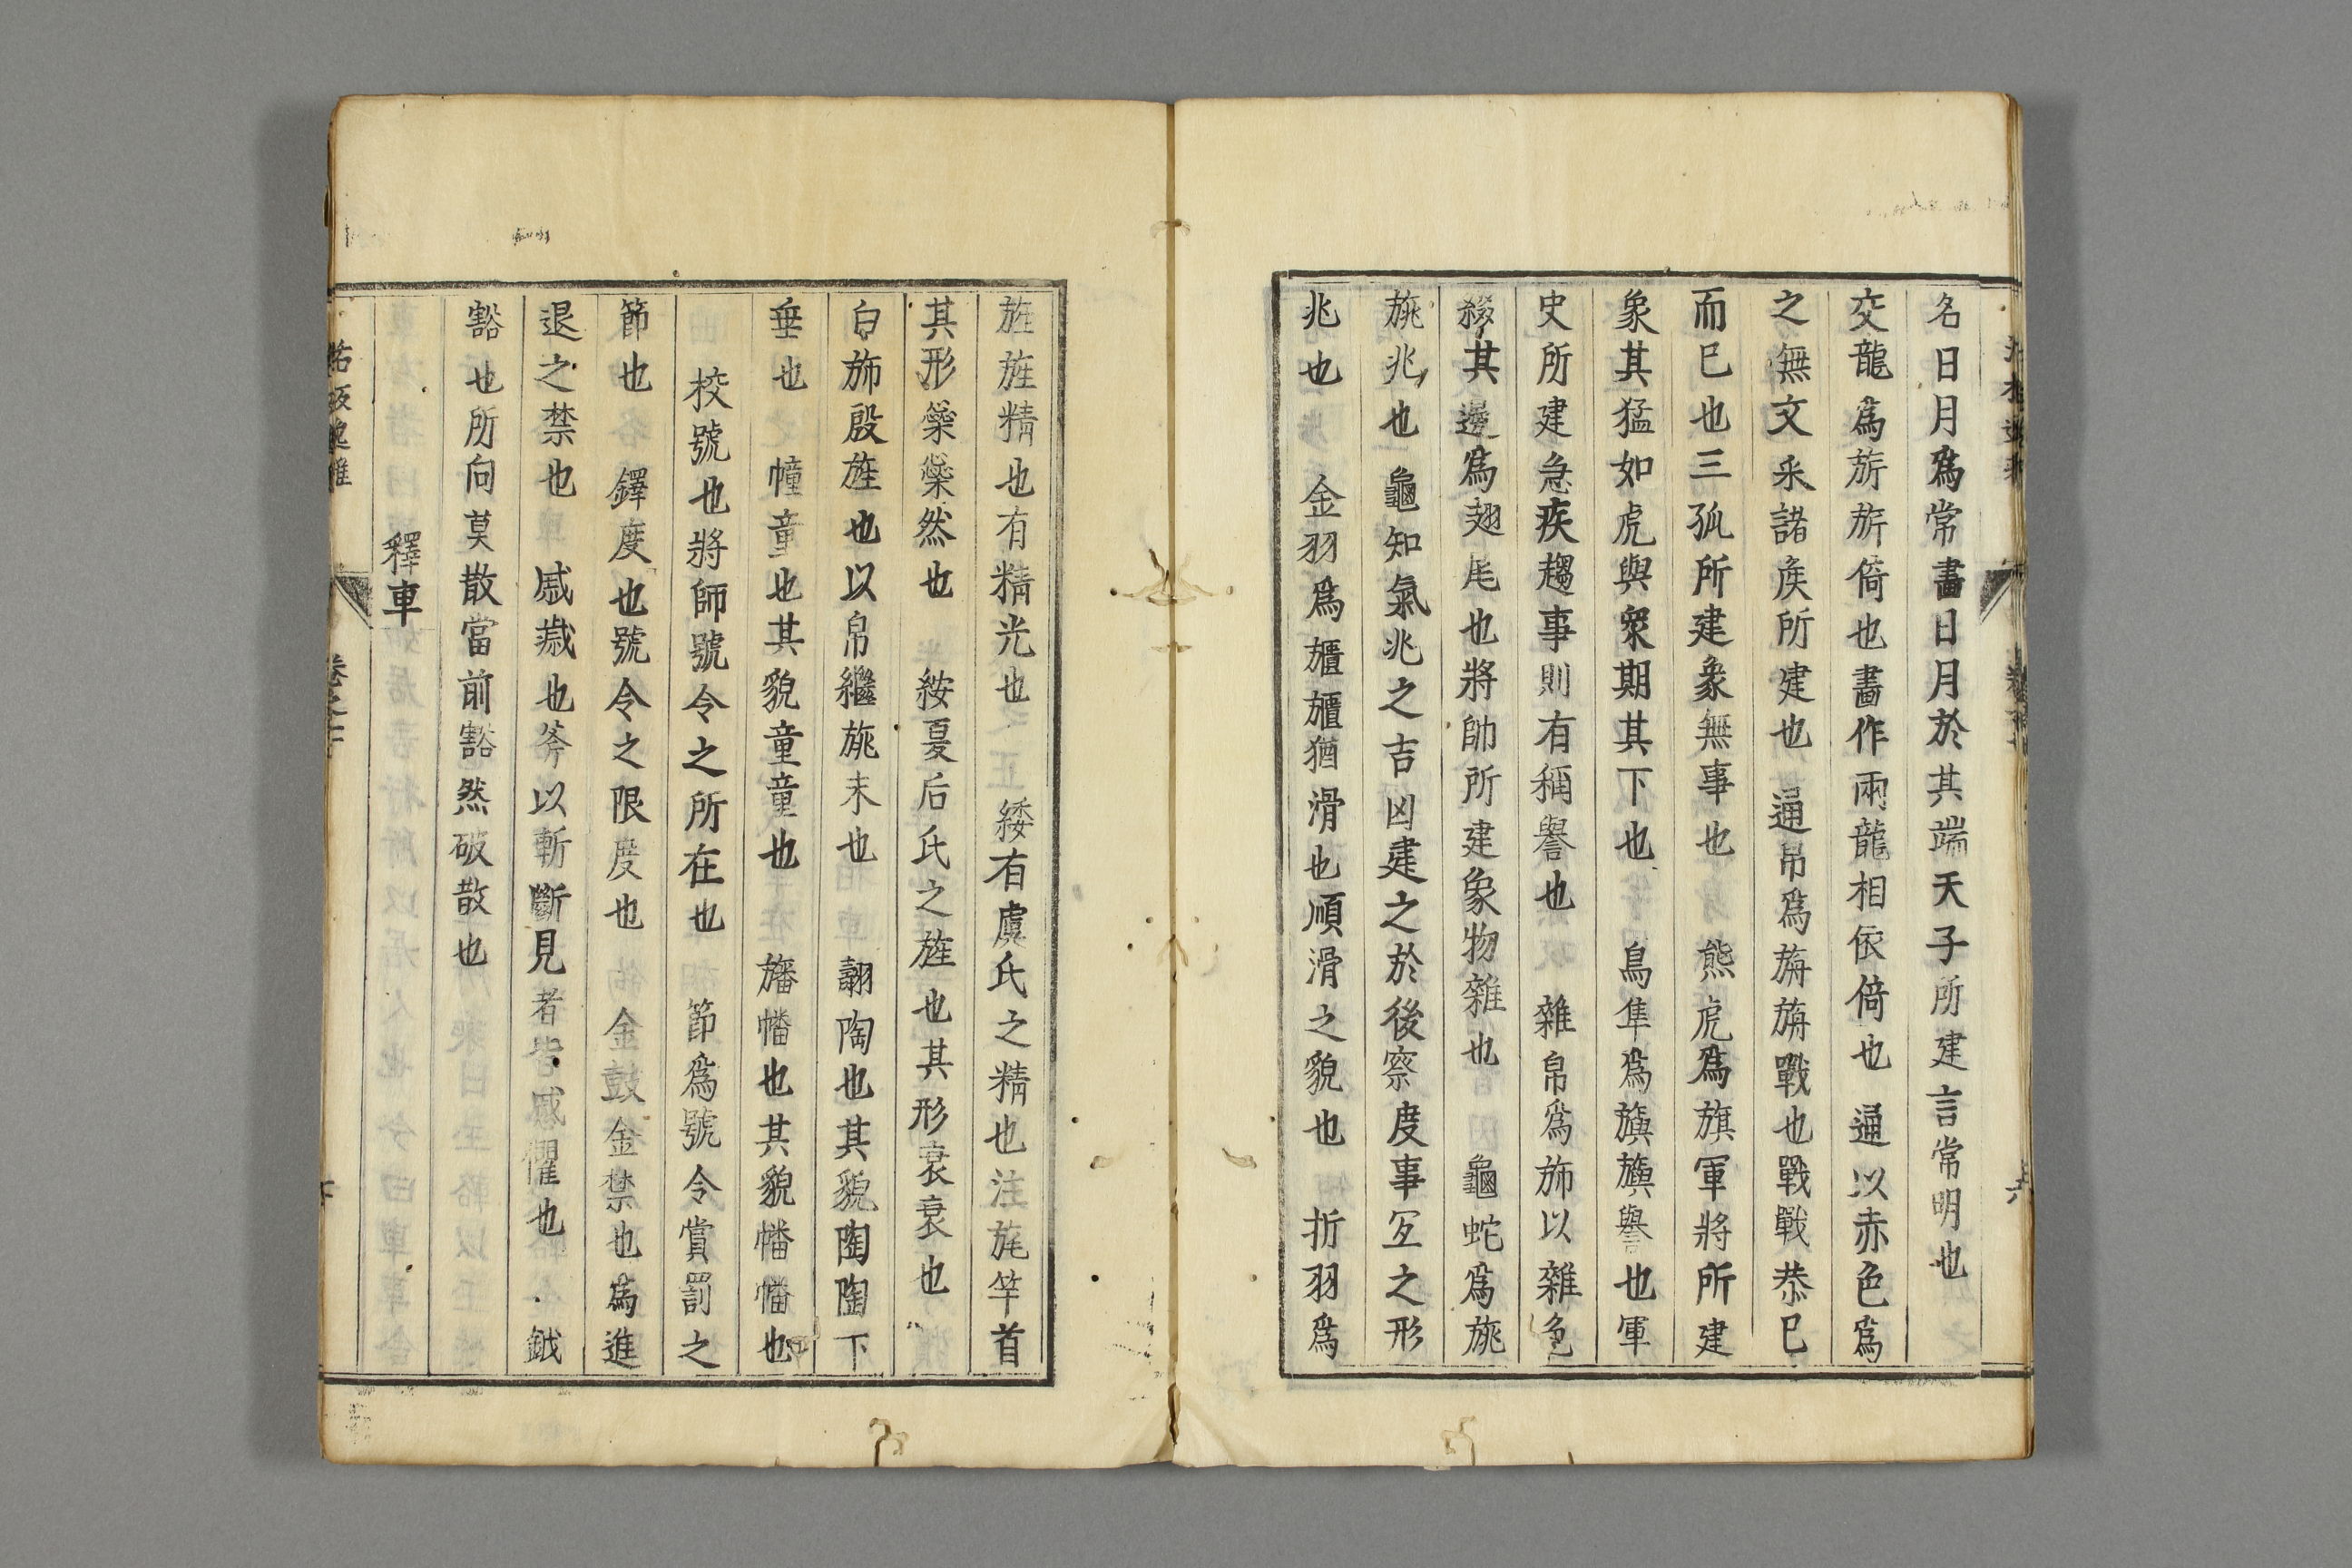 名日月爲常畫日月於其端天子所建言常明也
交龍爲旂旂倚也畵作兩龍相依倚也 通以赤色爲
之無文采諸矦所建也 通帛爲旃旃戰也戰戰恭巳
而巳也三孤所建象無事也 熊虎爲旗軍將所建
象其猛如虎與衆期其下也 鳥隼爲旟旟譽也軍
史所建急疾趨事則有稱譽也 雜帛爲斾以雜色
綴其邊爲翅尾也將帥所建象物雜也 龜蛇爲旐
旐兆也 龜知氣兆之吉凶建之於後察度事冝之形
兆也 金羽爲 猶滑也順滑之貌也 折羽爲
旌旌精也有精光也 緌有虞氏之精也注旄竿首
其形橤橤然也 綏夏后氏之旌也其形衰衰也
白斾殷旌也以帛繼旐末也 翿陶也其貌陶陶下
垂也 幢童也其貌童童也 旛幡也其貌幡幡也
校號也將師號令之所在也 節爲號令賞罰之
節也 鐸度也號令之限度也 金鼓金禁也爲進
退之禁也 戚慼也斧以斬斷見者皆慼懼也 鉞
豁也所向莫散當前豁然破散也
釋車
卷之七